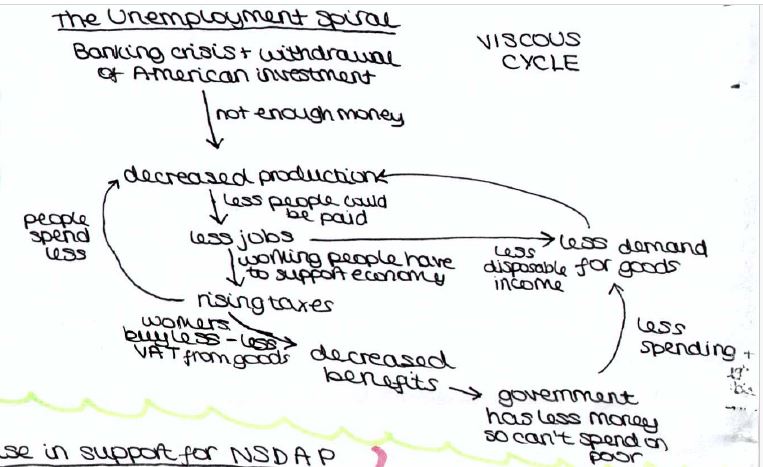 The Unemployment Spiral
Banking crisis + withdrawal
of American investment
VISCOUS
CYCLE
not enough money
decreased production
less people could
be paid
people
spend
less
less jobs
less demand
for goods
less
disposable
income
working people have
to support economy
rising taxes
workers
buy less - less
VAT from goods
decreased
benefits
less
spending +
government
has less money
so can't spend on
poor
se in support for NSDAP